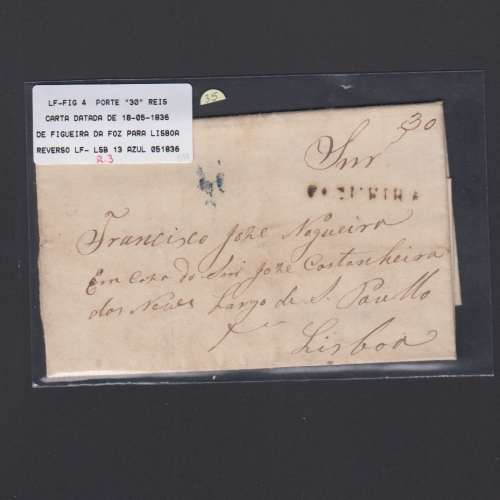 LF-FIG 4 PORTE "30" REIS
CARTA DATADA DE 18-05-1836
DE FIGUEIRA DA FOZ PARA LISBOA
REVERSO LF- LSB 13 AZUL 051836
R.3
35
30
Snr
FIGUEIRA
Francisco Joze Nogueira
Em Caza do Snr Joze Castanheira
das Neves Largo de S. Paullo
Lisboa